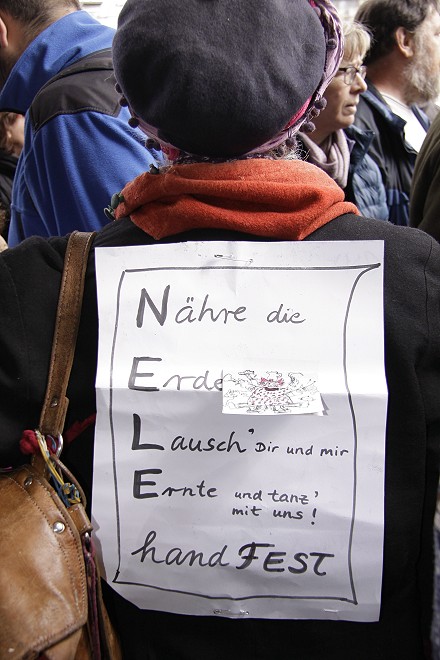 Nähre die
Erde
Lausch' Dir und mir
Ernte und tanz'
mit uns!
handFEST